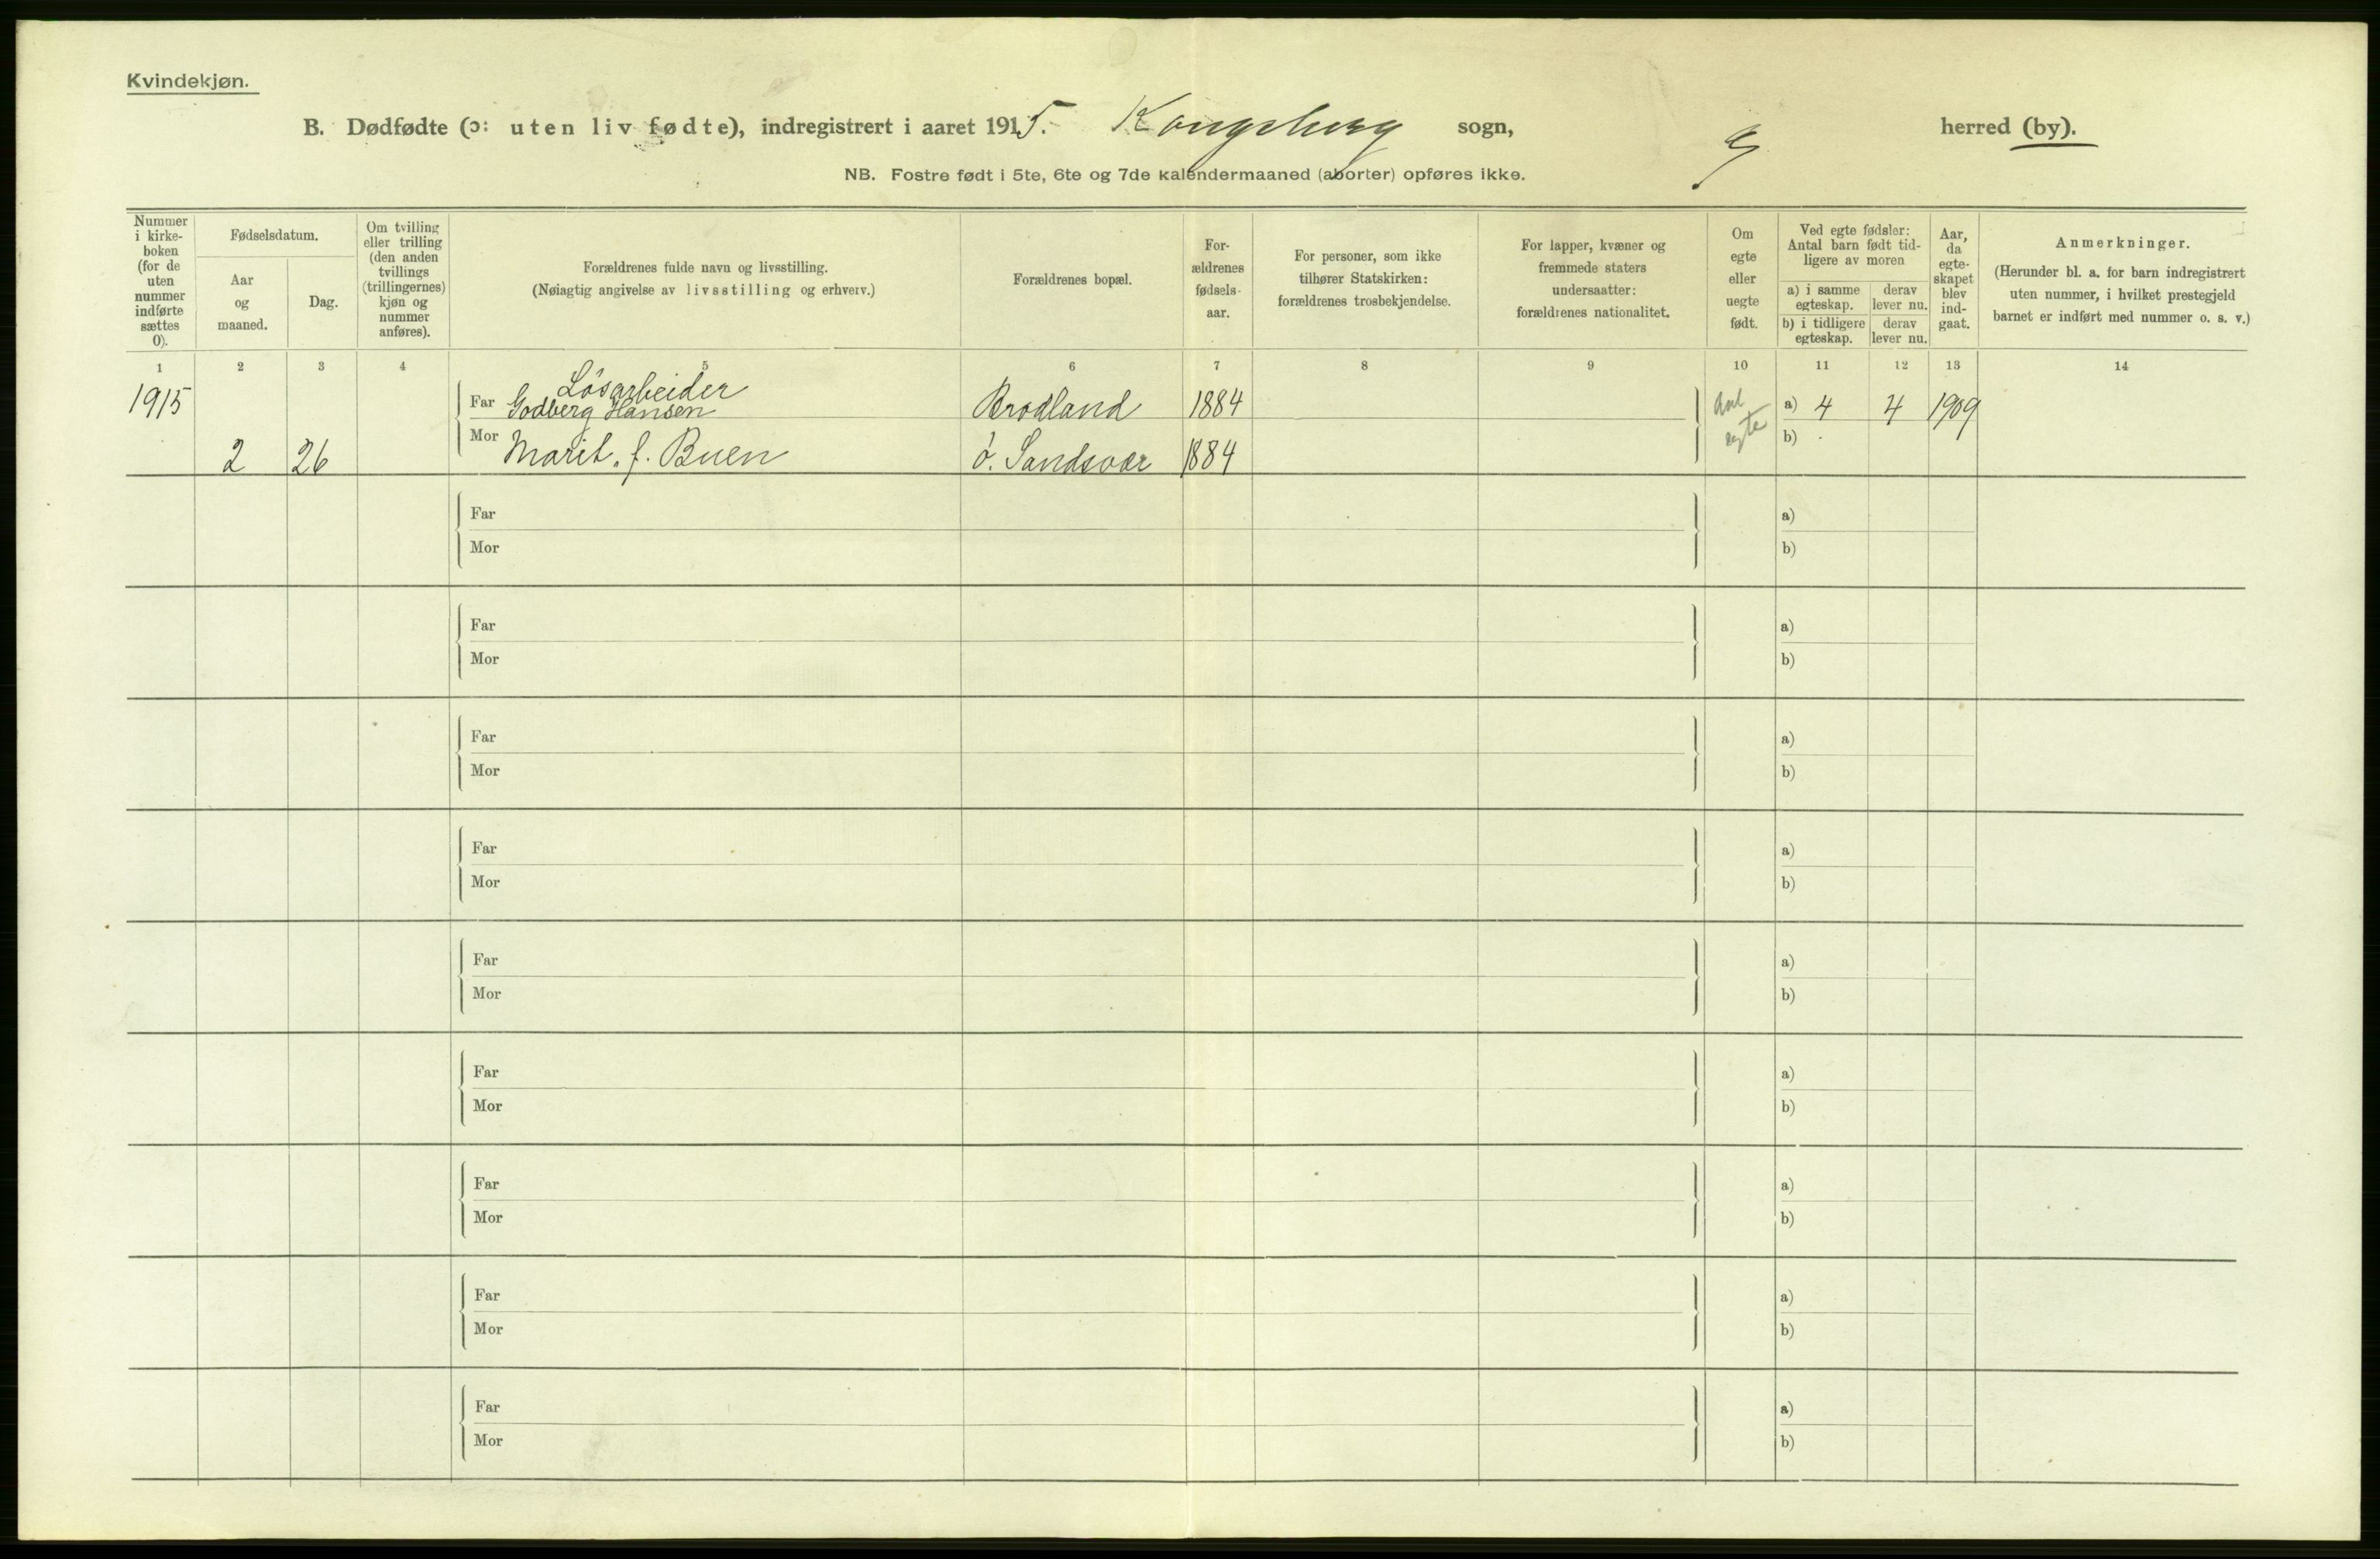 Kvindekjøn.
B. Dødfødte (ɔ: uten liv fødte), indregistrert i aaret 1915. Kongsberg sogn, herred (by).
NB. Fostre født i 5te, 6te og 7de kalendermaaned (aborter) opføres ikke.
Nummer i kirke-boken (for de uten nummer indførte sættes 0).
Fødselsdatum.
Aar og maaned.
Dag.
Om tvilling eller trilling (den anden tvillings (trillingernes) kjøn og nummer anføres).
Forældrenes fulde navn og livsstilling.
(Nøiagtig angivelse av livsstilling og erhverv.)
Forældrenes bopæl.
For-ældrenes fødsels-aar.
For personer, som ikke tilhører Statskirken: forældrenes trosbekjendelse.
For lapper, kvæner og fremmede staters undersaatter: forældrenes nationalitet.
Om egte eller uegte født.
Ved egte fødsler: Antal barn født tid-ligere av moren
a) i samme egteskap.
derav lever nu.
b) i tidligere egteskap.
derav lever nu.
Aar, da egte-skapet blev ind-gaat.
Anmerkninger.
(Herunder bl. a. for barn indregistrert uten nummer, i hvilket prestegjeld barnet er indført med nummer o. s. v.)
1 2 3 4 5 6 7 8 9 10 11 12 13 14
Løsarbeider
1915 Far Godberg Hansen Brodland 1884 a) 4 4 1909
egte
2 26 Mor Marit, f. Buen Ø. Sandsvær 1884 b)
Far a)
Mor b)
Far a)
Mor b)
Far a)
Mor b)
Far a)
Mor b)
Far a)
Mor b)
Far a)
Mor b)
Far a)
Mor b)
Far a)
Mor b)
Far a)
Mor b)